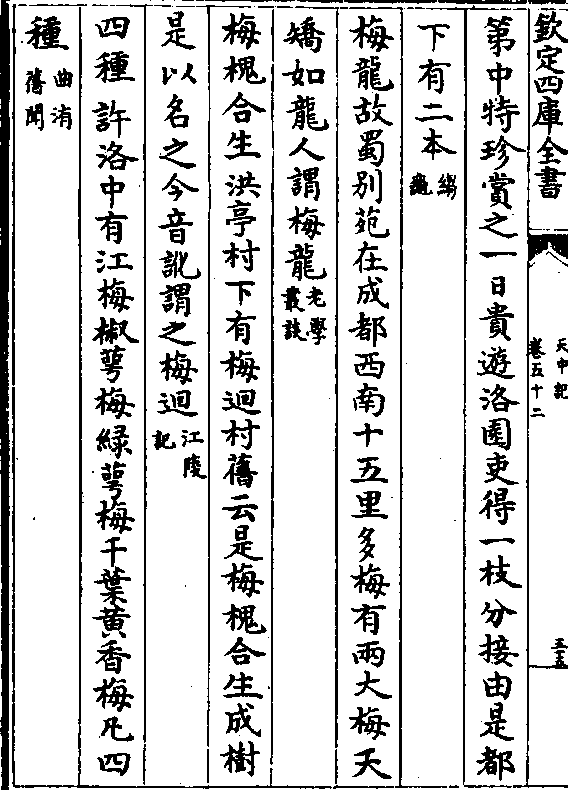 欽定四庫全書
天中記
卷五十二
三五
第中特珍賞之一日貴遊洛園吏得一枝分接由是都
下有二本
梅龍故蜀别苑在成都西南十五里多梅有兩大梅天
矯如龍人謂梅龍老學叢談
梅槐合生洪亭村下有梅迴村舊云是梅槐合生成樹
是以名之今音訛謂之梅迴江陵記
四種許洛中有江梅椒萼梅緑萼梅千葉黄香梅凡四
種曲洧舊聞